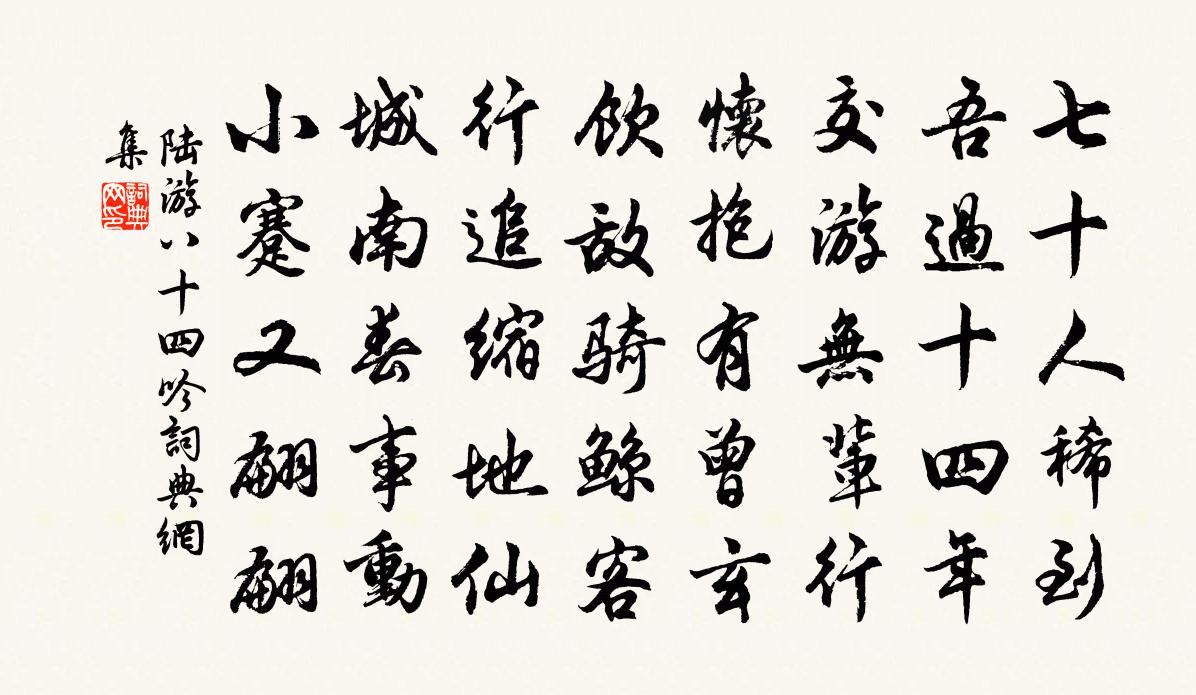 七十人稀到
吾過十四年
交游無輩行
懷抱有曾玄
飲敵騎鯨客
行追縮地仙
城南春事動
小蹇又翩翩
陆游八十四吟詞典網
集
詞典网印